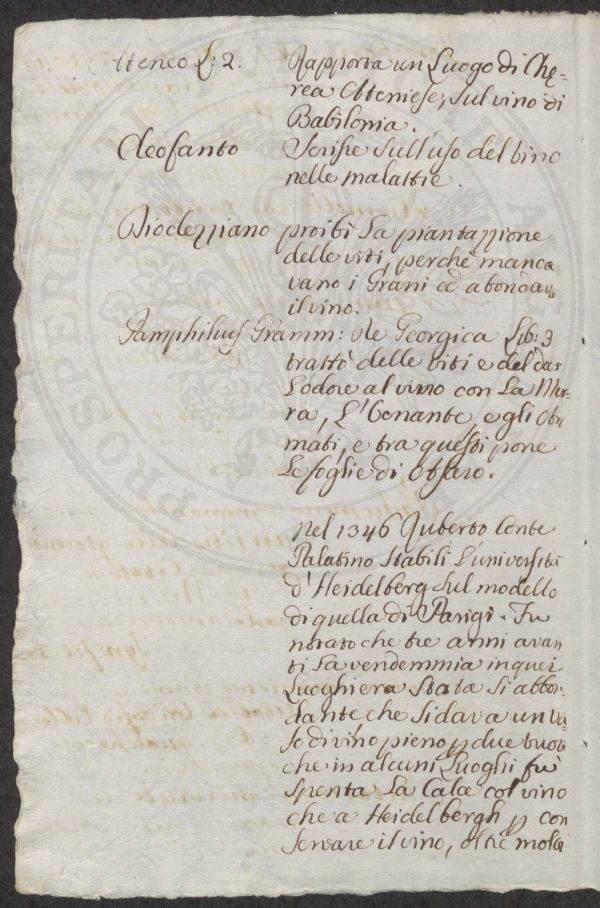 Ateneo L: 2. Rapporta un Luogo di Che-
rea Ateniese, sul vino di
Babilonia.
Cleofanto Scrisse sull'uso del vino
nelle malattie.
Dioclezziano proibì la piantazzione
delle viti, perchè manca
vano i Grani ed abondava
il vino.
Pamphilus Gramm: Re Georgica Lib: 3
trattò delle viti e del das
L'odore al vino con La Mir-
ra, L'Oenante, e gli Aro
mati, e tra questi pone
Le foglie di Asaro.
Nel 1346 Ruberto Conte
Palatino stabilì L'università
d'Heidelberg sul modello
di quella di Parigi. Fu
notato che tre anni avan
ti La vendemmia in quei
Luoghi era stata sì abbon-
dante, che si dava un va
so di vino pieno p due buoti
che in alcuni Luoghi fu
spenta La Calce col vino
che a Heidelbergh p con
servare il vino, oltre molti